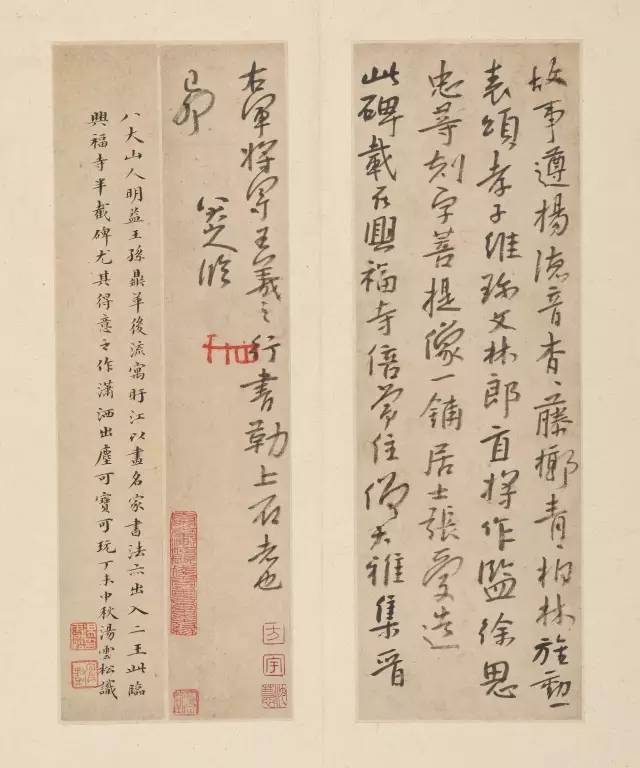 故事遵揚德音杳、藤鄉青、柏林旌勳
表頌孝子維珎文林郎直將作監徐思
忠等刻字菩提像一鋪居士張愛造
此碑載在興福寺倍常住僧大雅集晉
右軍將軍王羲之行書勒上石者也
己卯
八大山人臨
方宇
八大山人明益王孫鼎革後流寓盱江以畫名家書法亦出入二王此臨
興福寺半截碑尤其得意之作瀟洒出塵可寶可玩丁未中秋湯雲松識